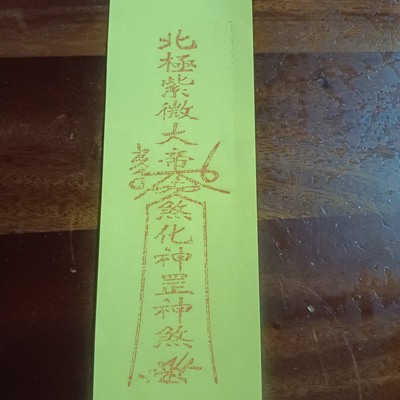 北極紫微大帝
煞化神罡神煞